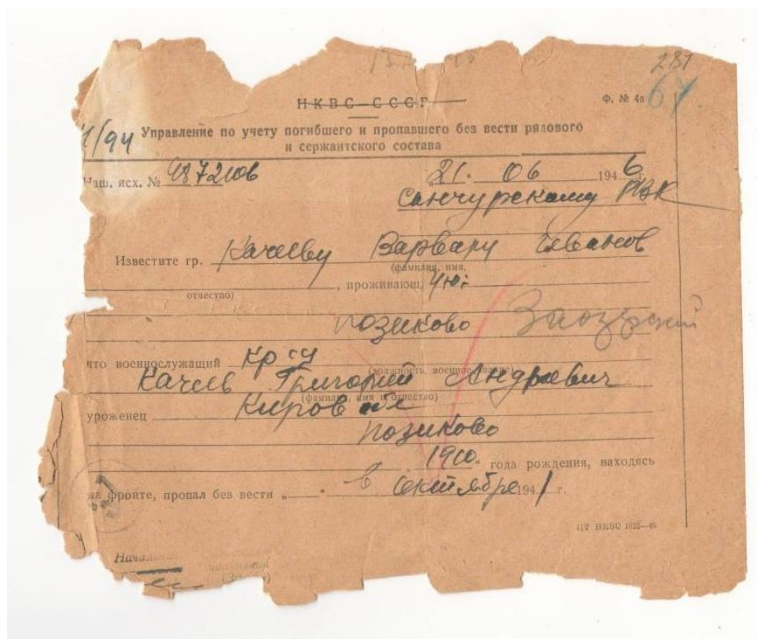 281
67
НКВС СССР
Ф. № 4а
Управление по учету погибшего и пропавшего без вести рядового
и сержантского состава
Наш. исх. № 21. 06 1946
Санчурскому РВК
Известите гр. Качееву Варвару Иванов
(фамилия, имя,
отчество) , проживающ.
Позиково Заозерский
что военнослужащий кр-су
Качеев Григорий Андреевич
(фамилия, имя и отчество)
уроженец Киров
Позиково
1910 года рождения, находясь
на фронте, пропал без вести „ в октябре 1941 г.